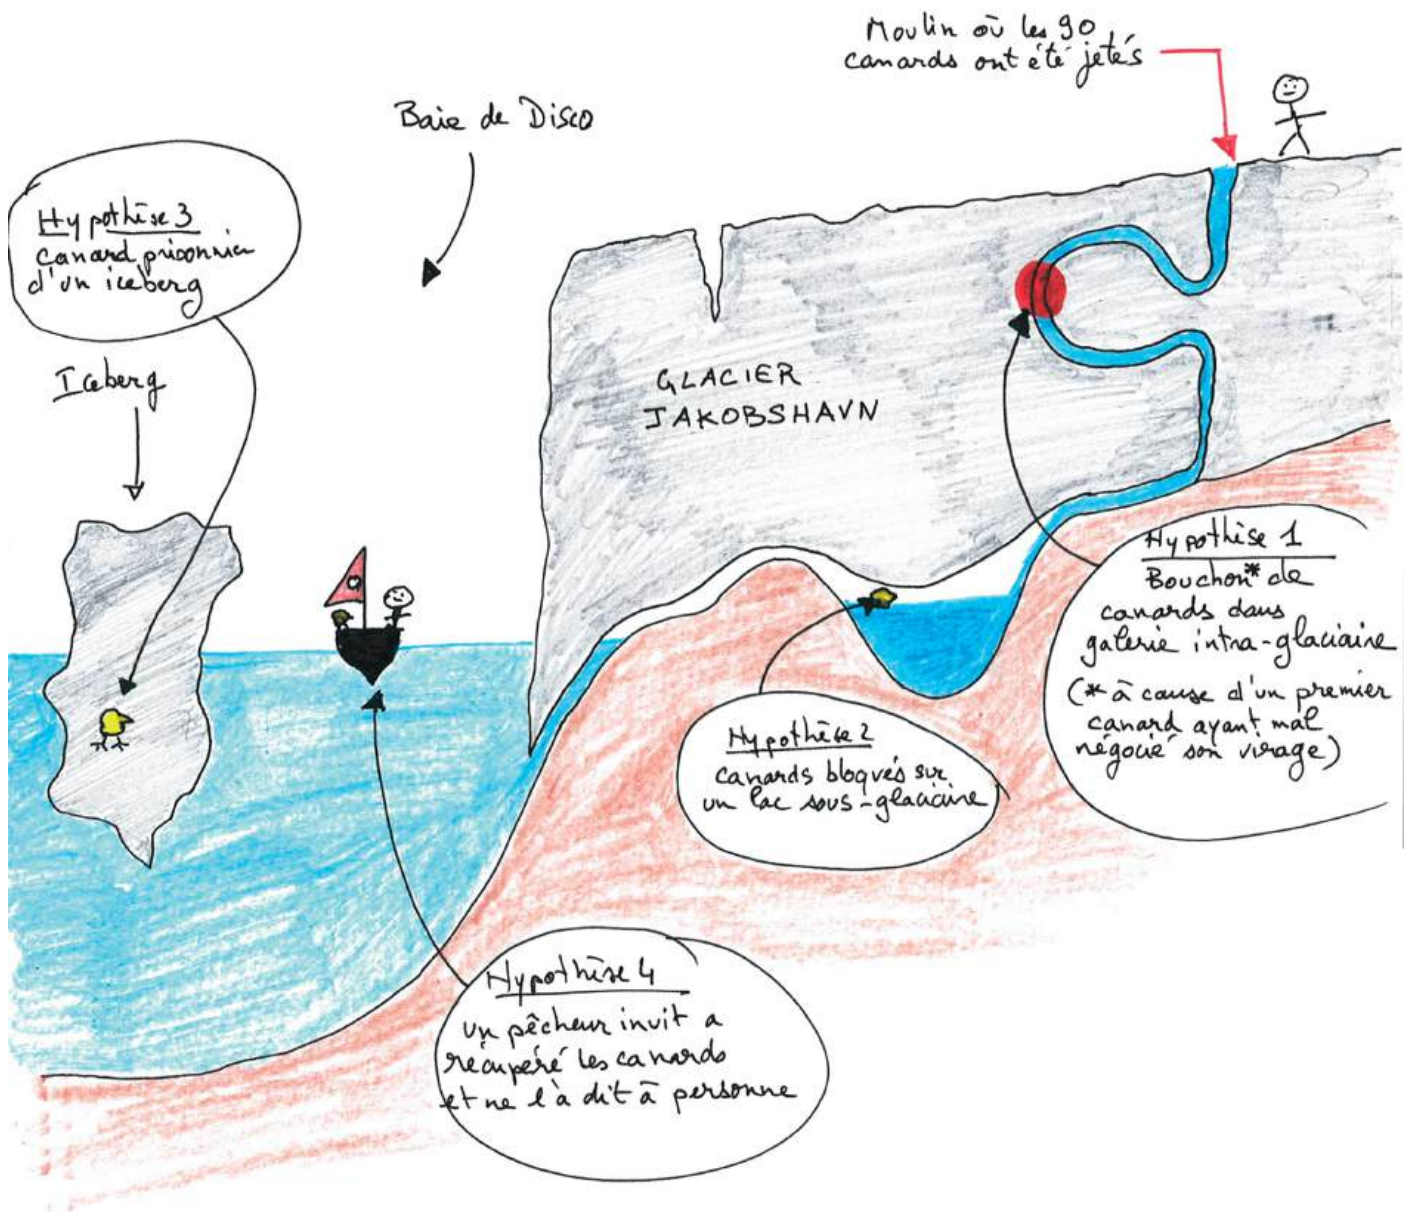 Moulin où les 90
canards ont été jetés
Baie de Disco
Hypothèse 3
canard prisonnier
d'un iceberg
Iceberg
GLACIER
JAKOBSHAVN
Hypothèse 1
Bouchon* de
canards dans
galerie intra-glaciaire
(* à cause d'un premier
canard ayant mal
négocié son virage)
Hypothèse 2
canards bloqués sur
un lac sous-glaciaire
Hypothèse 4
un pêcheur inuit a
récupéré les canards
et ne l'à dit à personne